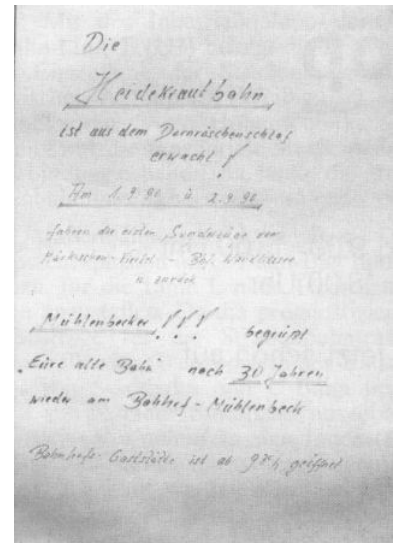 Die
Heidekrautbahn
ist aus dem Dornröschenschlaf
erwacht !
Am 1.9.90 u 2.9.90
fahren die ersten Sonderzüge vom
Märkischen-Viertel - Bhf. Wandlitzsee
u. zurück
Mühlenbecker !!! begrüßt
"Eure alte Bahn" nach 30 Jahren
wieder am Bahnhof - Mühlenbeck
Bahnhofs-Gaststätte ist ab geöffnet